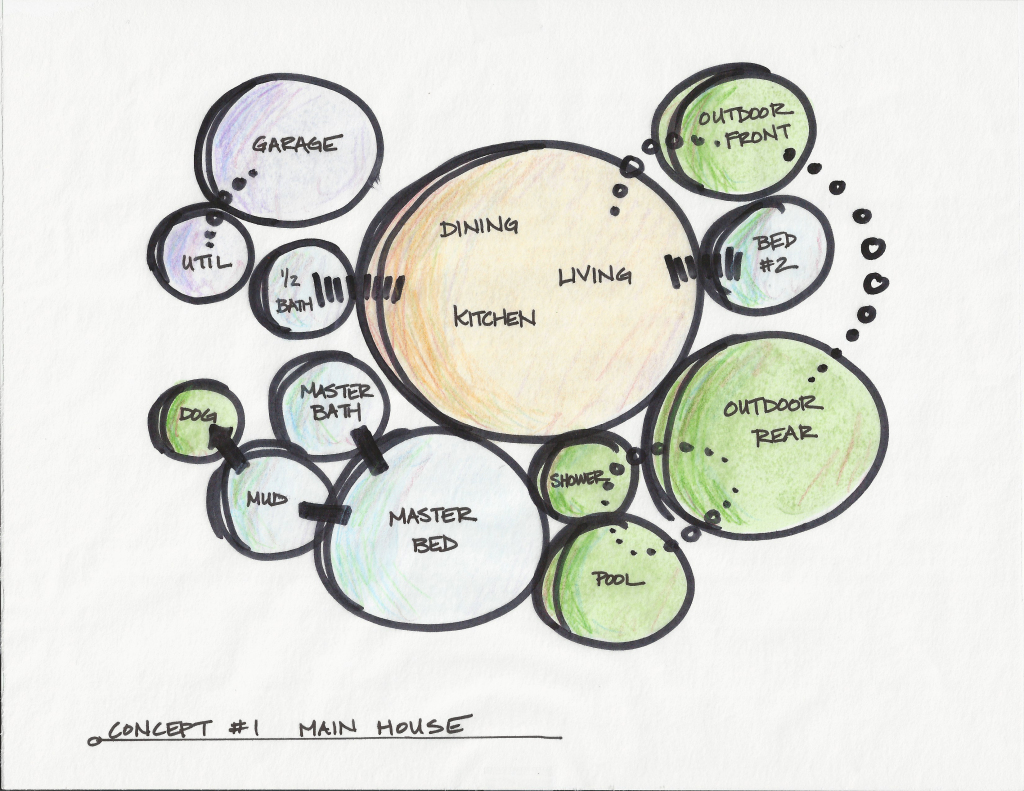 GARAGE
OUTDOOR
FRONT
DINING
LIVING
KITCHEN
BED
#2
UTIL
1/2
BATH
MASTER
BATH
DOG
MUD
MASTER
BED
SHOWER
OUTDOOR
REAR
POOL
CONCEPT #1 MAIN HOUSE